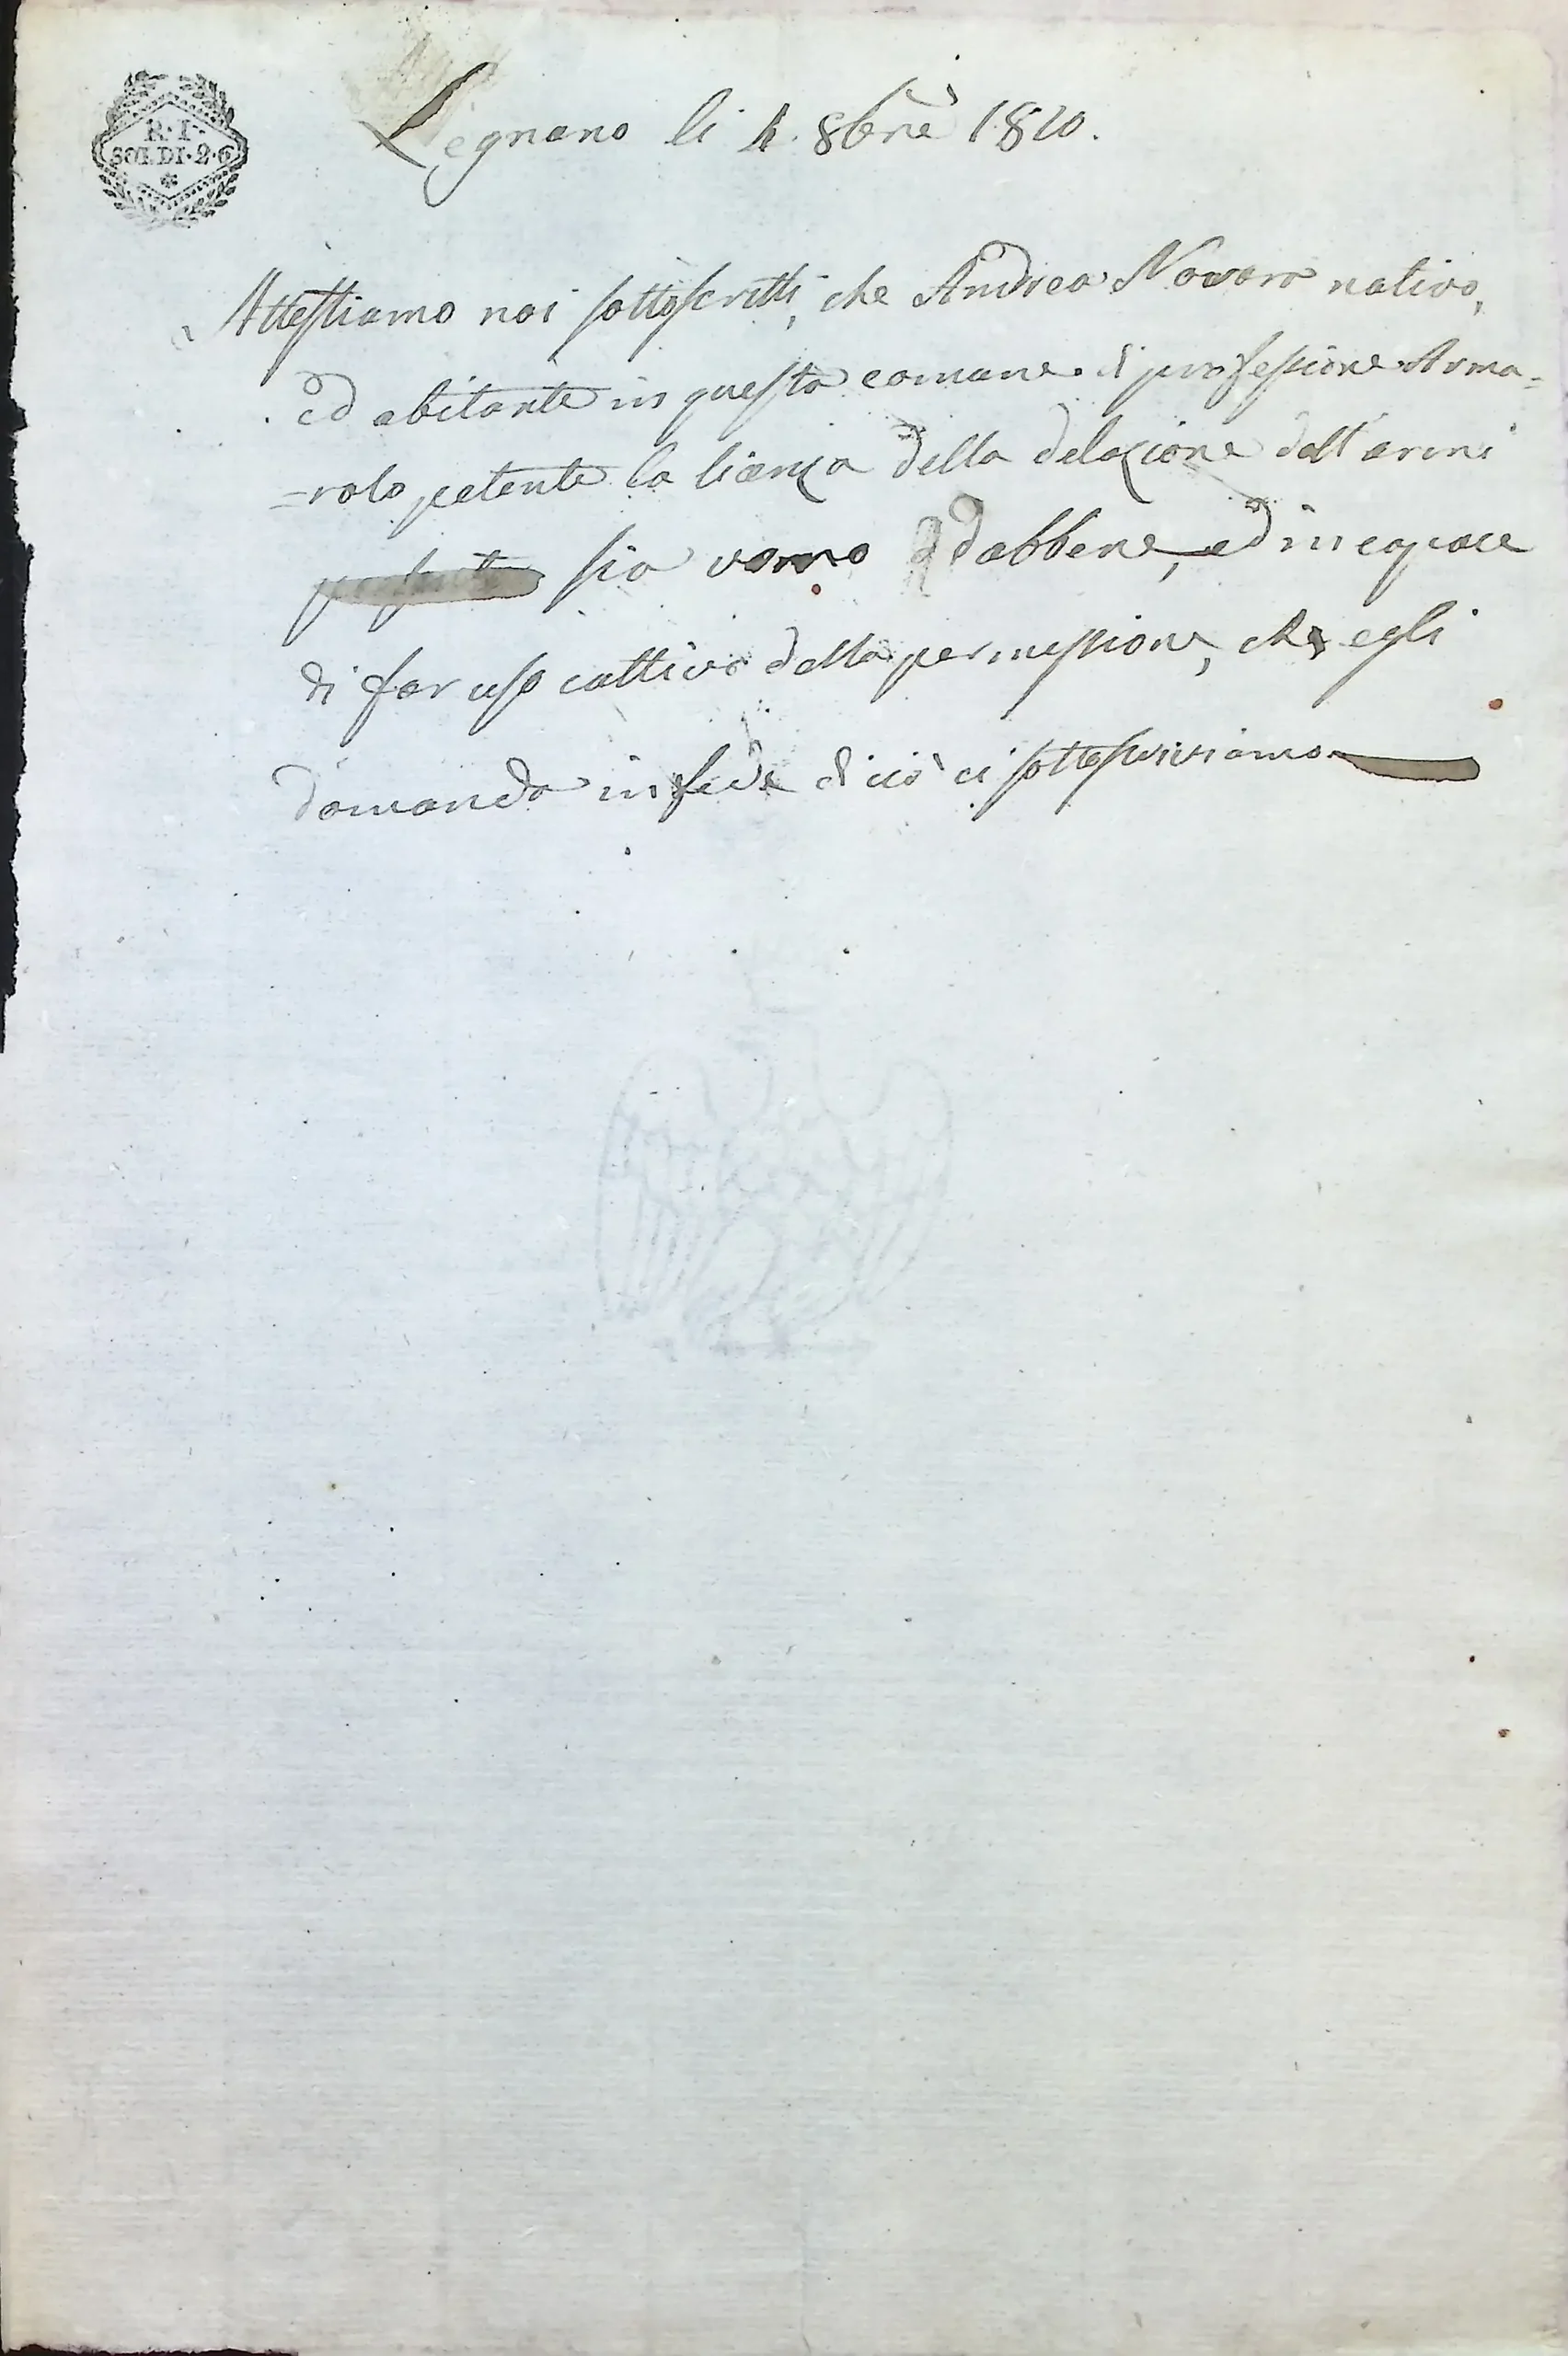 R. I.
SOLDI. 2. 6
Legnano li 4. 8bre 1810.
Attestiamo noi sottoscritti, che Andrea Novaro nativo,
ed abitante in questo comune. di professione Arma=
=rolo petente la licenza della delazione dell'armi
sia uomo dabbene, ed incapace
di far uso cattivo della permissione, che egli
domanda in fede di ciò ci sottoscriviamo